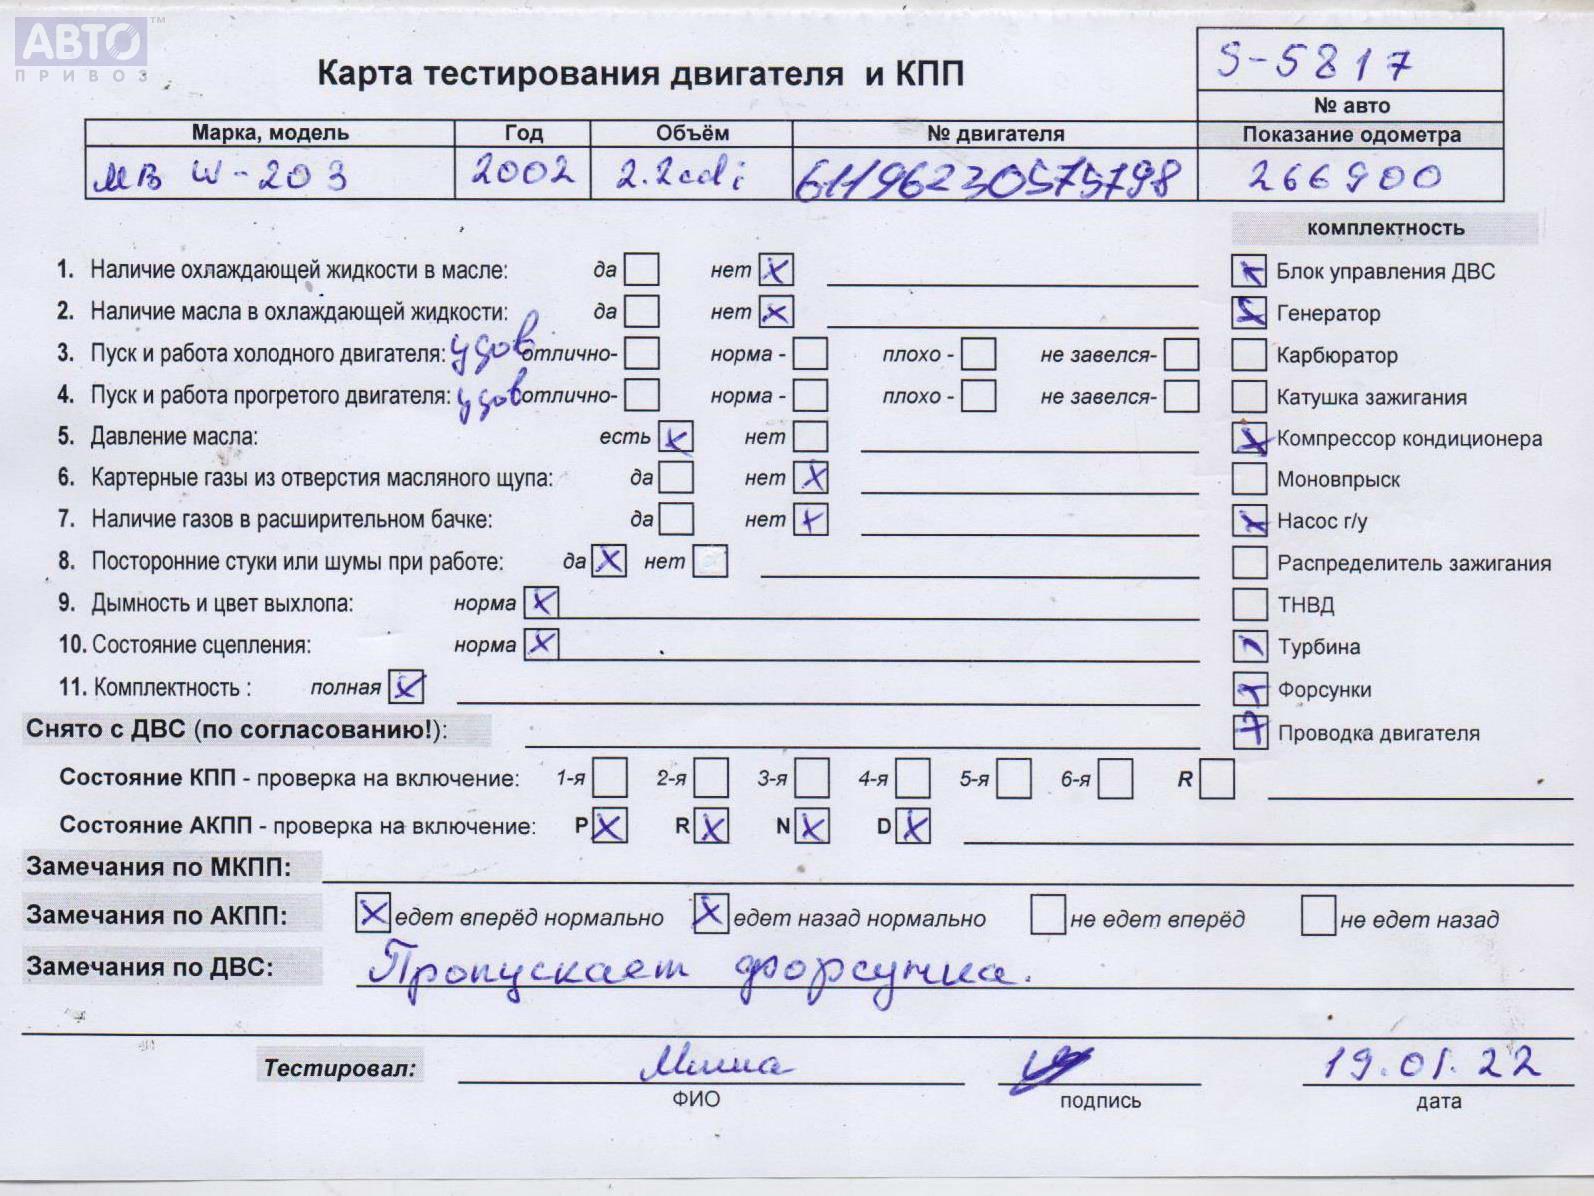 АВТО™
ПРИВОЗ
Карта тестирования двигателя и КПП
S-5817
№ авто
Марка, модель Год Объём № двигателя Показание одометра
МВ W-203 2002 2.2cdi 61196230575798 266900
комплектность
1. Наличие охлаждающей жидкости в масле: да нет X Блок управления ДВС
2. Наличие масла в охлаждающей жидкости: да нет X Генератор
3. Пуск и работа холодного двигателя: удов отлично- норма - плохо - не завелся- Карбюратор
4. Пуск и работа прогретого двигателя: удов отлично- норма - плохо - не завелся- Катушка зажигания
5. Давление масла: есть X нет Компрессор кондиционера
6. Картерные газы из отверстия масляного щупа: да нет X Моновпрыск
7. Наличие газов в расширительном бачке: да нет X Насос г/у
8. Посторонние стуки или шумы при работе: да X нет Распределитель зажигания
9. Дымность и цвет выхлопа: норма X ТНВД
10. Состояние сцепления: норма X Турбина
11. Комплектность : полная X Форсунки
Снято с ДВС (по согласованию!): Проводка двигателя
Состояние КПП - проверка на включение: 1-я 2-я 3-я 4-я 5-я 6-я R
Состояние АКПП - проверка на включение: P X R X N X D X
Замечания по МКПП:
Замечания по АКПП: X едет вперёд нормально X едет назад нормально не едет вперёд не едет назад
Замечания по ДВС: Пропускает форсунка.
Тестировал: Миша 19.01.22
ФИО подпись дата